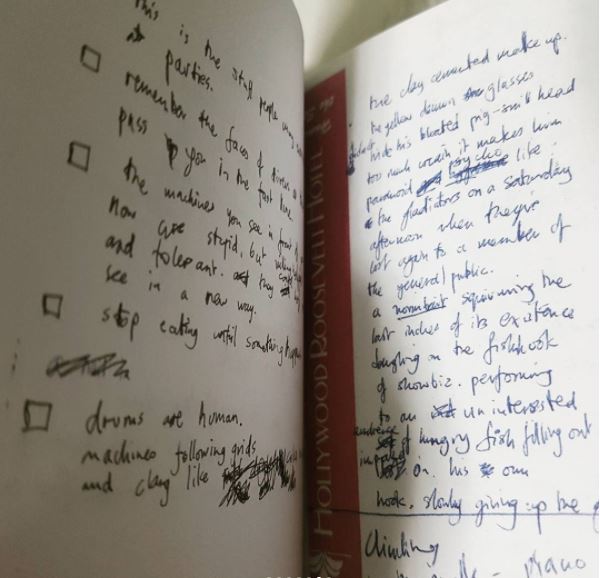 this is the stuff people
at parties.
remember the faces of drivers
pass you in the fast lane.
the machines you see in front of
now are stupid, but
and tolerant. they
see in a new way.
stop eating until something
drums are human.
machines following grids
and clay like
HOLLYWOOD ROOSEVELT HOTEL
the clay cemented make up.
the yellow glasses
hide his bloated pig-smile head
too much it makes him
paranoid psycho like
the gladiators on a saturday
afternoon when they've
lost again to a member of
the general public.
a squirming the
last inches of its existence
dangling on the fishhook
of showbiz. performing
to an uninterested
audience of hungry fish filling out
impaled on his own
hook. slowly giving up the
climbing
piano